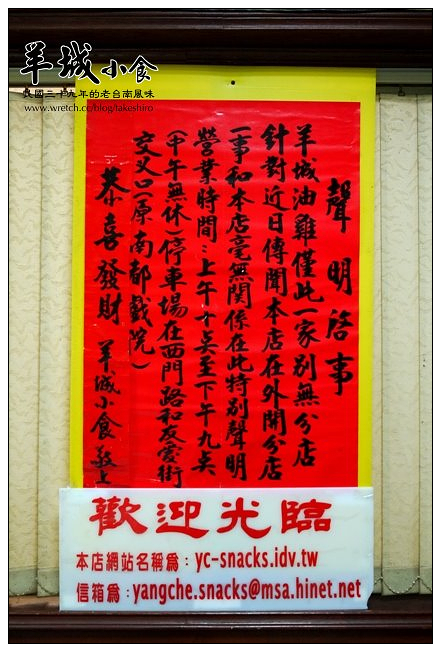 羊城小食
民國三十九年的老台南風味
www.wretch.cc/blog/takestiro
聲明啓事
羊城油雞僅此一家別無分店
針對近日傳聞本店在外開分店
一事和本店毫無關係在此特別聲明
營業時間：上午十点至下午九点
（中午無休）停車場在西門路和友愛街
交叉口（原南都戲院）
恭喜發財 羊城小食敬上
歡迎光臨
本店網站名稱為：yc-snacks.idv.tw
信箱為：yangche.snacks@msa.hinet.net